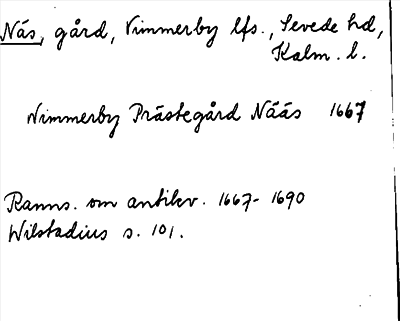 Näs, gård, Vimmerby lfs., Sevede hd,
Kalm. l.
Vimmerby Prästegård Nääs 1667
Ranns. om antikv. 1667-1690
Wilstadius s. 101.